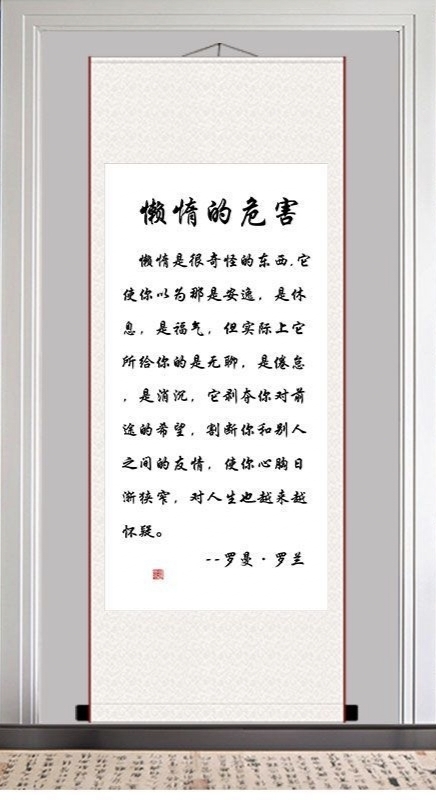 懒惰的危害
懒惰是很奇怪的东西,它
使你以为那是安逸，是休
息，是福气，但实际上它
所给你的是无聊，是倦怠
，是消沉，它剥夺你对前
途的希望，割断你和别人
之间的友情，使你心胸日
渐狭窄，对人生也越来越
怀疑。
--罗曼·罗兰